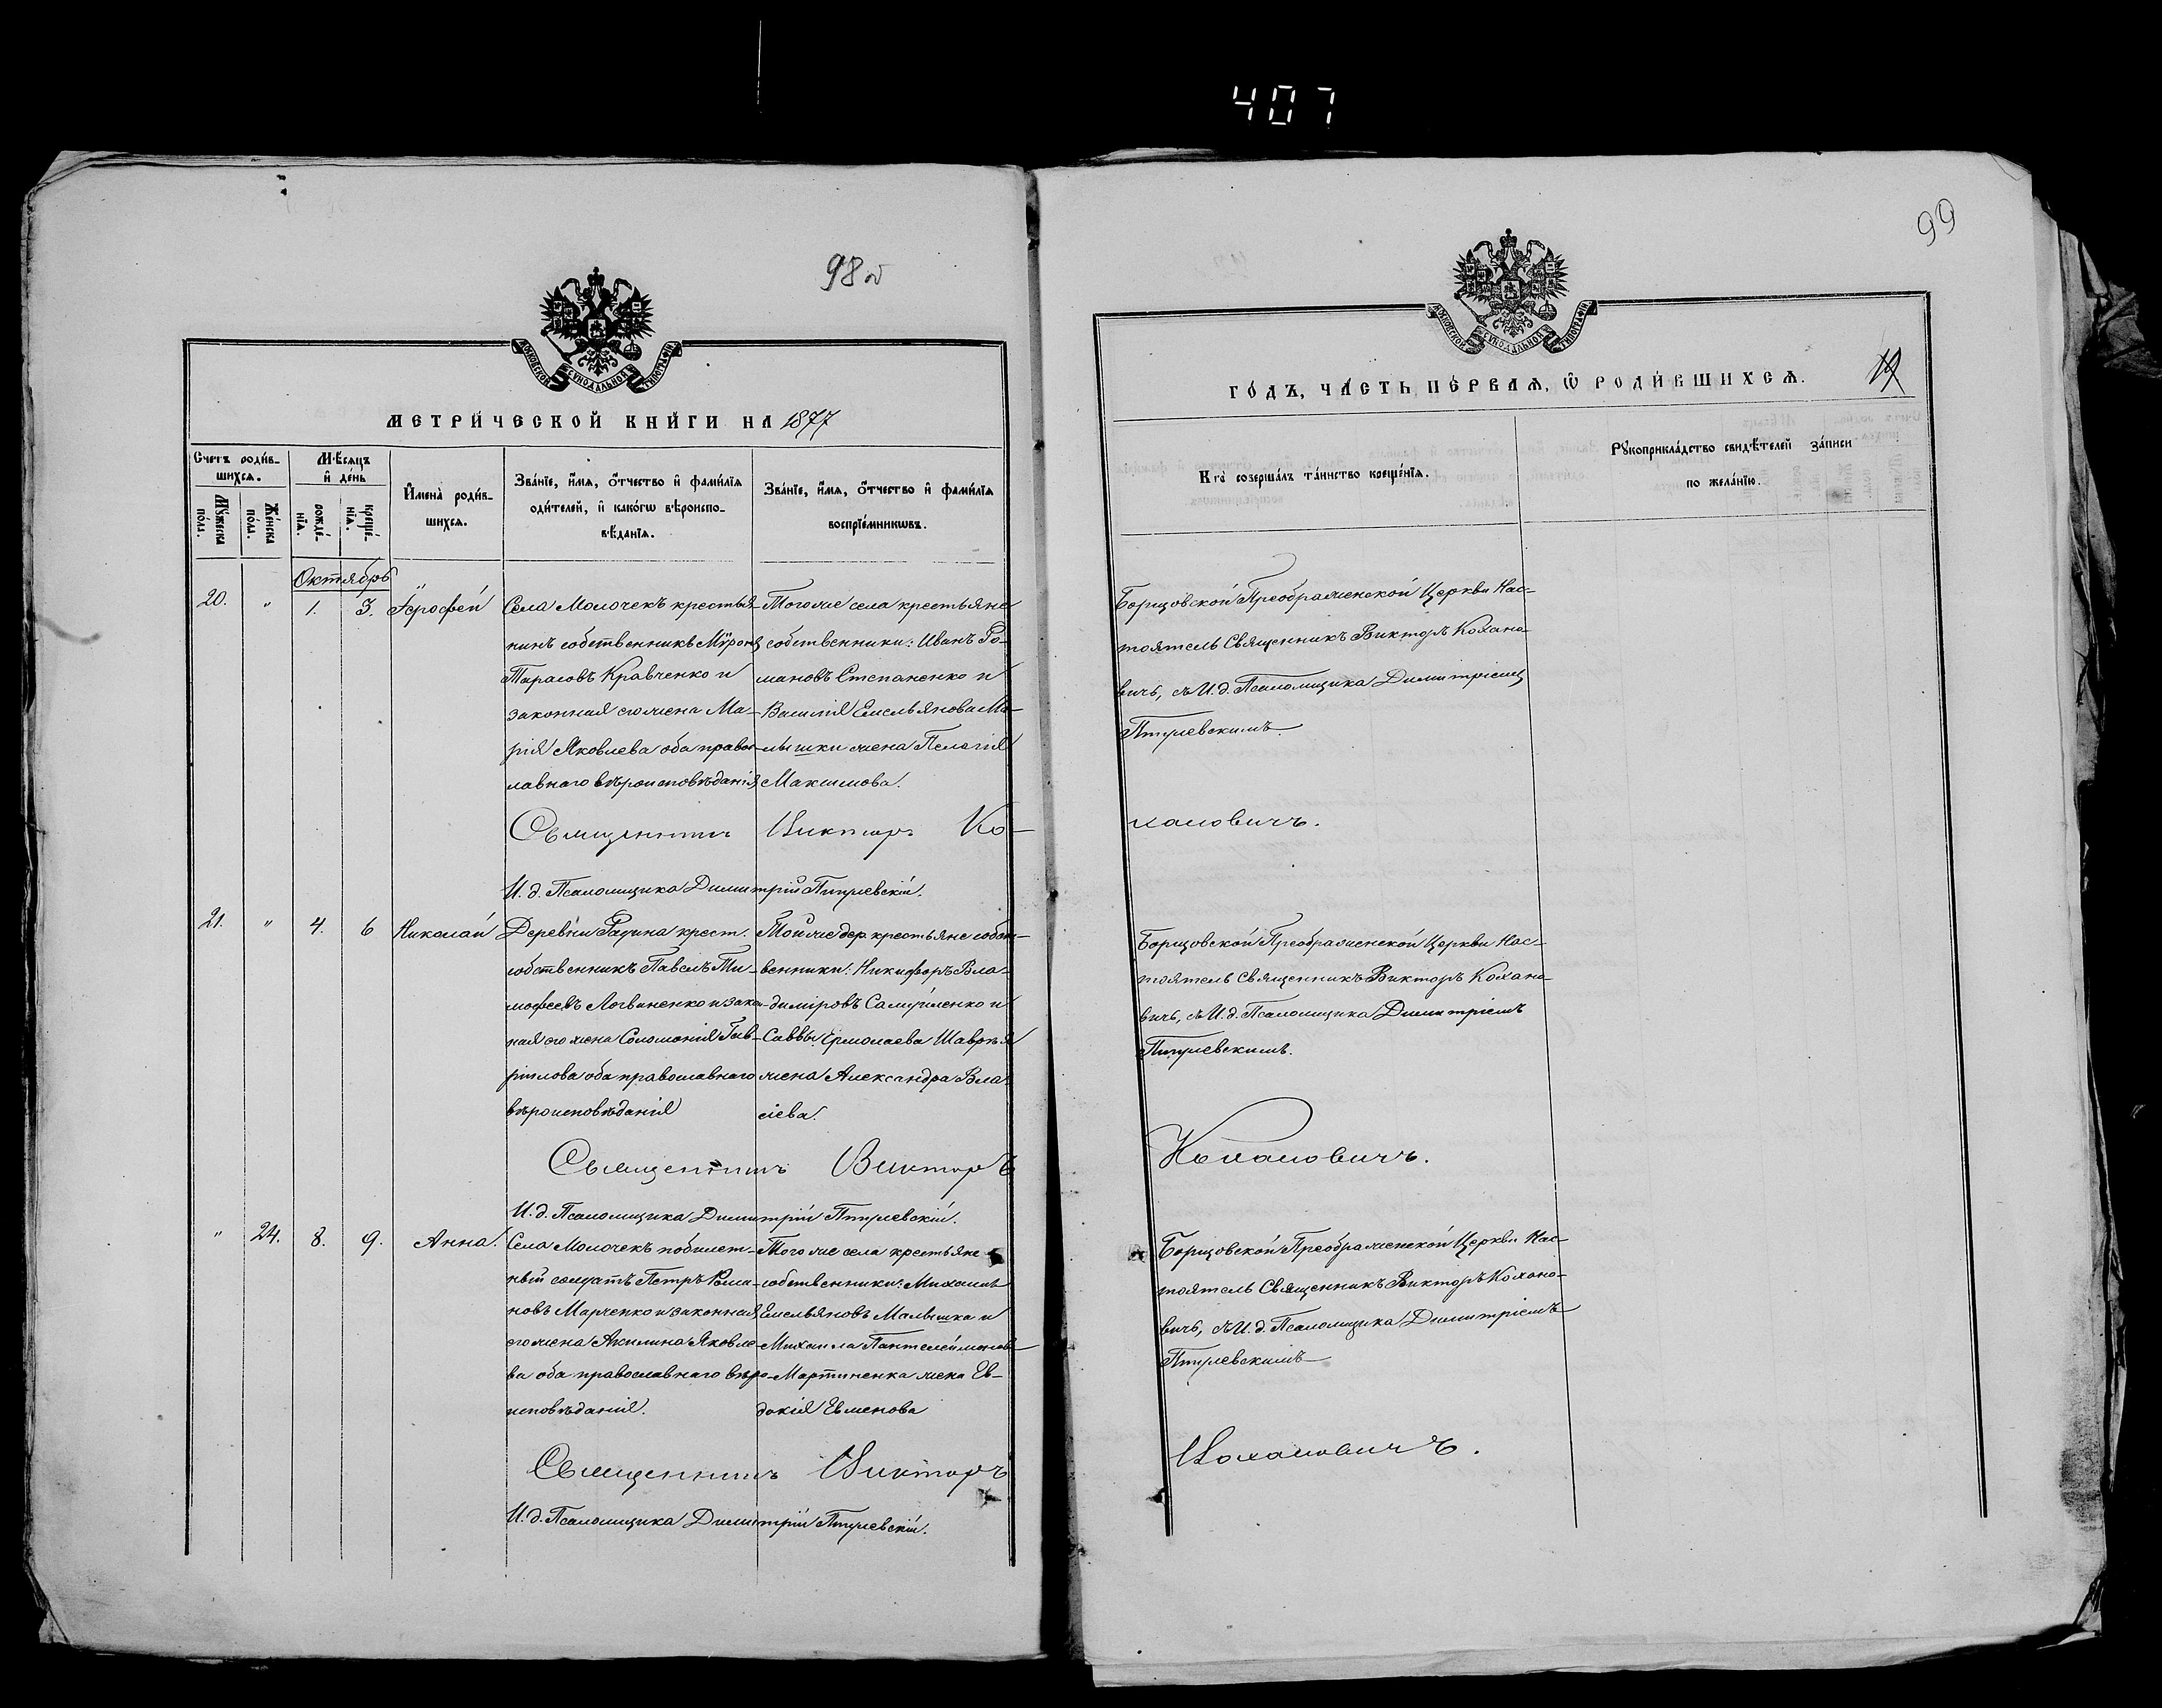 407
98
99
МОСКОВСКОЙ СѴНОДАЛЬНОЙ ТИПОГРАФІИ
МЕТРИ́ЧЕСКОЙ КНИ́ГИ НА 1877
Счетъ роди́в-
шихсѧ.
Мꙋ́жеска
по́ла.
Же́нска
по́ла.
Мѣ́сѧцъ
и҆ де́нь
рожде́-
нїѧ.
креще́-
нїѧ.
И҆мена̀ роди́в-
шихсѧ.
Зва́нїе, и҆́мѧ, ѻ҆́тчество и҆ фами́лїѧ
роди́телей, и҆ како́гѡ вѣроиспо-
вѣ́данїѧ.
Зва́нїе, и҆́мѧ, ѻ҆́тчество и҆ фами́лїѧ
воспрїе́мникѡвъ.
Октябрь
20. " 1. 3. Іерофей
Села Молочекъ крестья-
нинъ собственникъ Міронъ
Тарасовъ Кравченко и
законная его жена Ма-
рія Яковлева оба правос-
лавнаго вѣроисповѣданія
Того же села крестьяне
собственники: Иванъ Ро-
мановъ Степаненко и
Василія Емельянова Ма-
лышки жена Пелагія
Максимова.
Священникъ Викторъ Ко-
И. д. Псаломщика Димитрій Птулевскій.
21. " 4. 6 Николай
Деревни Рацина крест.
собственникъ Павелъ Ти-
мофеевъ Логвиненко и закон-
ная его жена Соломонія Гав-
ріилова оба православнаго
вѣроисповѣданія
Той же дер. крестьяне собст-
венники: Никифоръ Вла-
диміровъ Самуйленко и
Саввы Ермолаева
жена Александра Вла-
сіева.
Священникъ Викторъ
И. д. Псаломщика Димитрій Птулевскій.
" 24. 8. 9. Анна.
Села Молочекъ побилет-
ный солдатъ Петръ Рома-
новъ Марченко и законная
его жена Акилина Яковле-
ва оба православнаго вѣро-
исповѣданія.
Того же села крестьяне
собственники: Михаилъ
Емельяновъ Малышка и
Михаила Пантелеймонова
Мартиненка жена Ев-
докія Евменова
Священникъ Викторъ
И. д. Псаломщика Димитрій Птулевскій.
МОСКОВСКОЙ СѴНОДАЛЬНОЙ ТИПОГРАФІИ
ГО́ДЪ, ЧА́СТЬ ПЕ́РВАѦ, Ѡ҆ РОДИ́ВШИХСѦ.
Кто̀ соверша́лъ та́инство креще́нїѧ.
Рꙋкоприкла́дство свидѣ́телей за́писи
по жела́нїю.
Борщовской Преображенской Церкви Нас-
тоятель Священникъ Викторъ Кохано-
вичъ, съ И. д. Псаломщика Димитріемъ
Птулевскимъ.
хановичъ.
Борщовской Преображенской Церкви Нас-
тоятель Священникъ Викторъ Кохано-
вичъ, съ И. д. Псаломщика Димитріемъ
Птулевскимъ.
Кохановичъ.
Борщовской Преображенской Церкви Нас-
тоятель Священникъ Викторъ Кохано-
вичъ, съ И. д. Псаломщика Димитріемъ
Птулевскимъ
Кохановичъ.